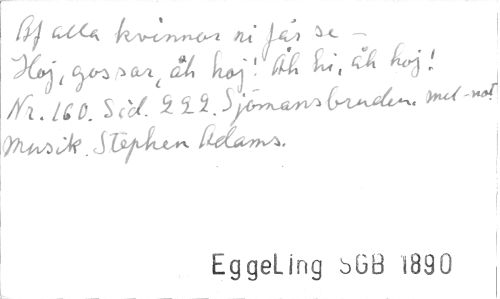 Af alla kvinnor ni får se –
Hoj, gossar, åh hoj! Åh hi, åh hoj!
Nr. 160. Sid. 222. Sjömansbruden. mel-not
Musik. Stephen Adams.
EggeLing SGB 1890